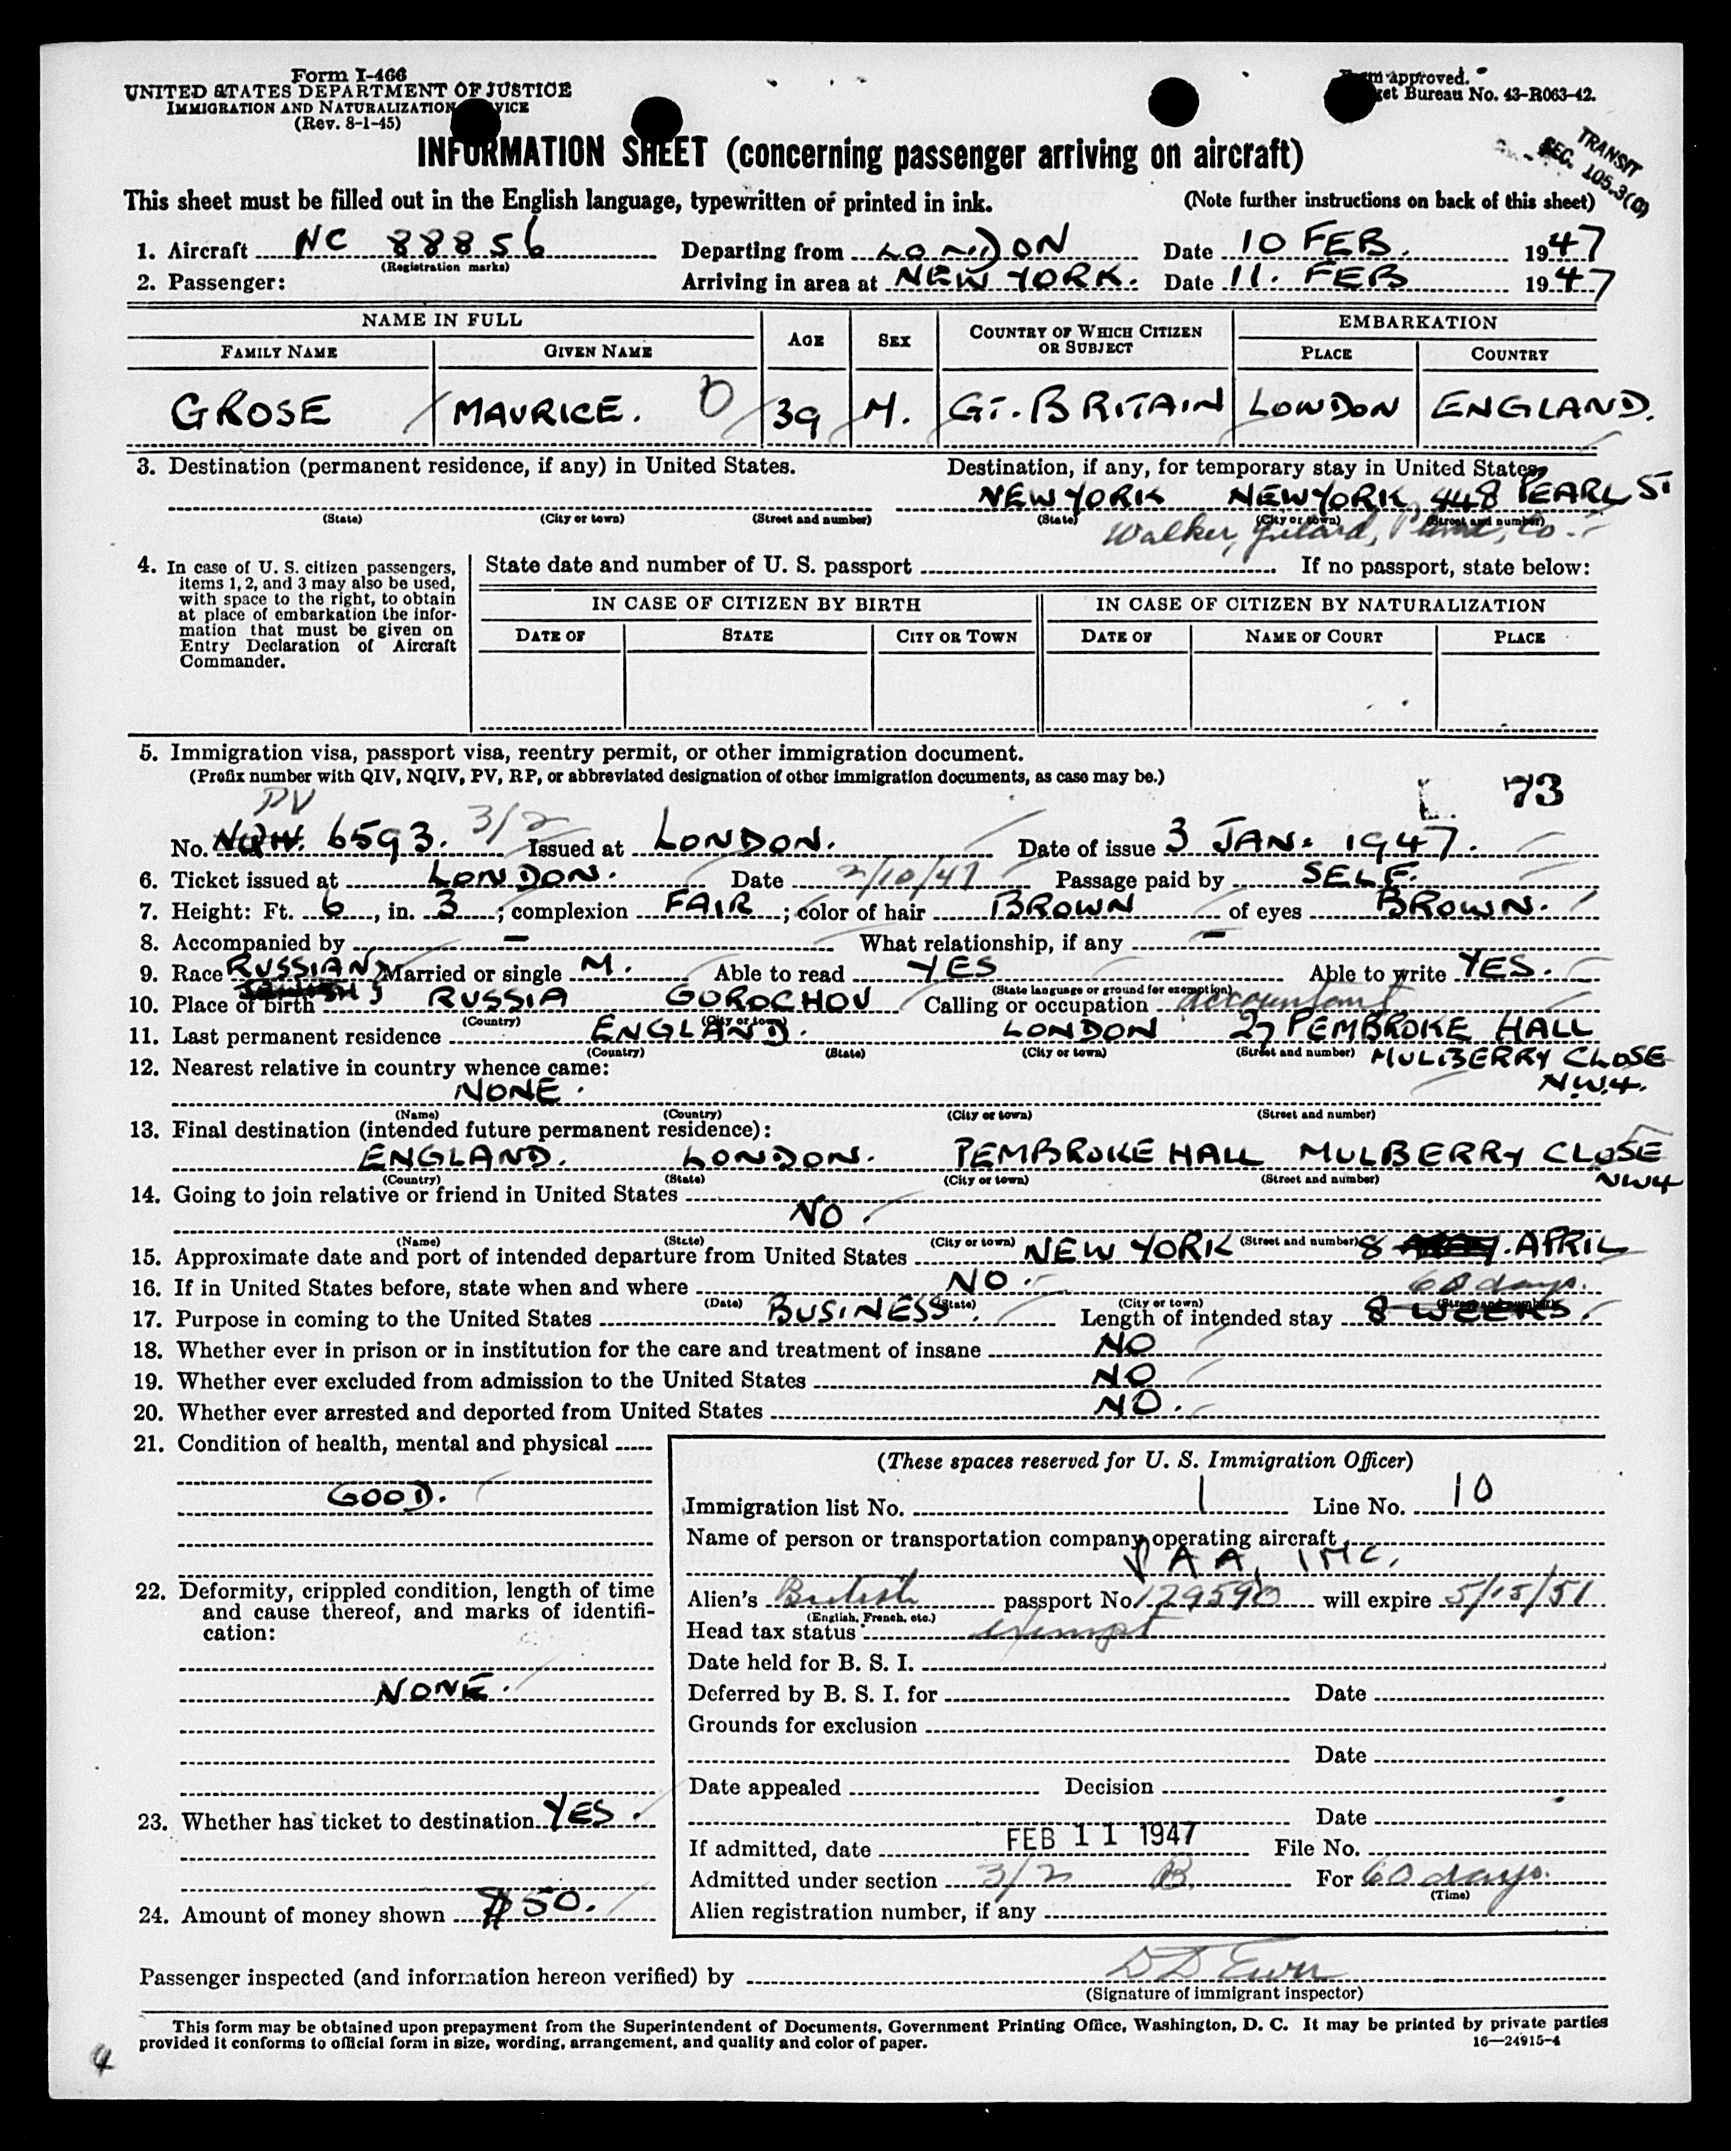 Form I-466
UNITED STATES DEPARTMENT OF JUSTICE
IMMIGRATION AND NATURALIZATION
(Rev. 8-1-45)
approved.
Bureau No. 43-R063-42.
TRANSIT
SEC. 105.3(c)
INFORMATION SHEET (concerning passenger arriving on aircraft)
This sheet must be filled out in the English language, typewritten or printed in ink. (Note further instructions on back of this sheet)
1. Aircraft NC 88856 Departing from LONDON Date 10 FEB. 1947
(Registration marks)
2. Passenger: Arriving in area at NEW YORK. Date 11. FEB 1947
NAME IN FULL AGE SEX COUNTRY OF WHICH CITIZEN OR SUBJECT EMBARKATION
FAMILY NAME GIVEN NAME PLACE COUNTRY
GROSE MAURICE. 39 M. GT. BRITAIN LONDON ENGLAND.
3. Destination (permanent residence, if any) in United States. Destination, if any, for temporary stay in United States,
NEW YORK NEW YORK 448 PEARL ST
(State) (City or town) (Street and number) (State) (City or town) (Street and number)
Walker, Co.
4. In case of U. S. citizen passengers, items 1, 2, and 3 may also be used, with space to the right, to obtain at place of embarkation the information that must be given on Entry Declaration of Aircraft Commander.
State date and number of U. S. passport If no passport, state below:
IN CASE OF CITIZEN BY BIRTH IN CASE OF CITIZEN BY NATURALIZATION
DATE OF STATE CITY OR TOWN DATE OF NAME OF COURT PLACE
5. Immigration visa, passport visa, reentry permit, or other immigration document.
(Prefix number with QIV, NQIV, PV, RP, or abbreviated designation of other immigration documents, as case may be.)
73
PV
No. 6593. 3/2 Issued at LONDON. Date of issue 3 JAN. 1947.
6. Ticket issued at LONDON. Date 2/10/47 Passage paid by SELF.
7. Height: Ft. 6, in. 3; complexion FAIR; color of hair BROWN of eyes BROWN.
8. Accompanied by — What relationship, if any —
9. Race RUSSIAN Married or single M. Able to read YES Able to write YES.
(State language or ground for exemption)
10. Place of birth RUSSIA GOROCHOV Calling or occupation accountant
(Country) (City or town)
11. Last permanent residence ENGLAND. LONDON 27 PEMBROKE HALL
(Country) (State) (City or town) (Street and number) MULBERRY CLOSE
N.W.4.
12. Nearest relative in country whence came:
NONE.
(Name) (Country) (City or town) (Street and number)
13. Final destination (intended future permanent residence):
ENGLAND. LONDON. PEMBROKE HALL MULBERRY CLOSE
(Country) (State) (City or town) (Street and number) NW4
14. Going to join relative or friend in United States
NO.
(Name) (State) (City or town) (Street and number)
15. Approximate date and port of intended departure from United States NEW YORK 8 APRIL
16. If in United States before, state when and where NO.
(Date) (State) (City or town) (Street and number)
60 days.
17. Purpose in coming to the United States BUSINESS. Length of intended stay 8 WEEKS.
18. Whether ever in prison or in institution for the care and treatment of insane NO
19. Whether ever excluded from admission to the United States NO
20. Whether ever arrested and deported from United States NO.
21. Condition of health, mental and physical
GOOD.
22. Deformity, crippled condition, length of time and cause thereof, and marks of identification:
NONE.
23. Whether has ticket to destination YES.
24. Amount of money shown $50.
(These spaces reserved for U. S. Immigration Officer)
Immigration list No. 1 Line No. 10
Name of person or transportation company operating aircraft
PAA, INC.
Alien's British passport No. 129590 will expire 5/15/51
(English, French, etc.)
Head tax status exempt
Date held for B. S. I.
Deferred by B. S. I. for Date
Grounds for exclusion
Date
Date appealed Decision
Date
If admitted, date FEB 11 1947 File No.
Admitted under section 3/2 B. For 60 days.
(Time)
Alien registration number, if any
Passenger inspected (and information hereon verified) by
(Signature of immigrant inspector)
This form may be obtained upon prepayment from the Superintendent of Documents, Government Printing Office, Washington, D. C. It may be printed by private parties
provided it conforms to official form in size, wording, arrangement, and quality and color of paper. 16—24915-4
4